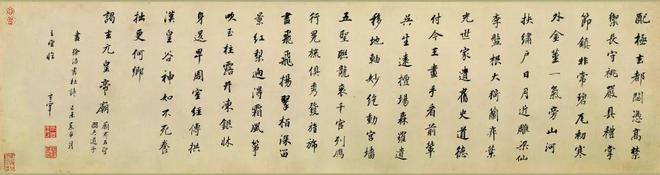 配極玄都閟憑高禁
籞長守祧嚴具禮掌
節鎮非常碧瓦初寒
外金莖一氣旁山河
扶繡户日月近雕梁仙
李盤根大猗蘭奕葉
光世家遺舊史道德
付今王畫手看前輩
吳生遠擅場森羅遺
移地軸妙絶動宫墻
五聖聯龍衮千官列鴈
行冕旒俱秀發旌旆
盡飛飛揚翠柏深留
景紅梨迥得霜風箏
吹玉柱露井凍銀牀
身退卑周室經傳拱
漢皇谷神如不死養
拙更何鄉
謁玄元皇帝廟
廟有五聖
圖吳道子
書徐浩書杜詩
己未 月